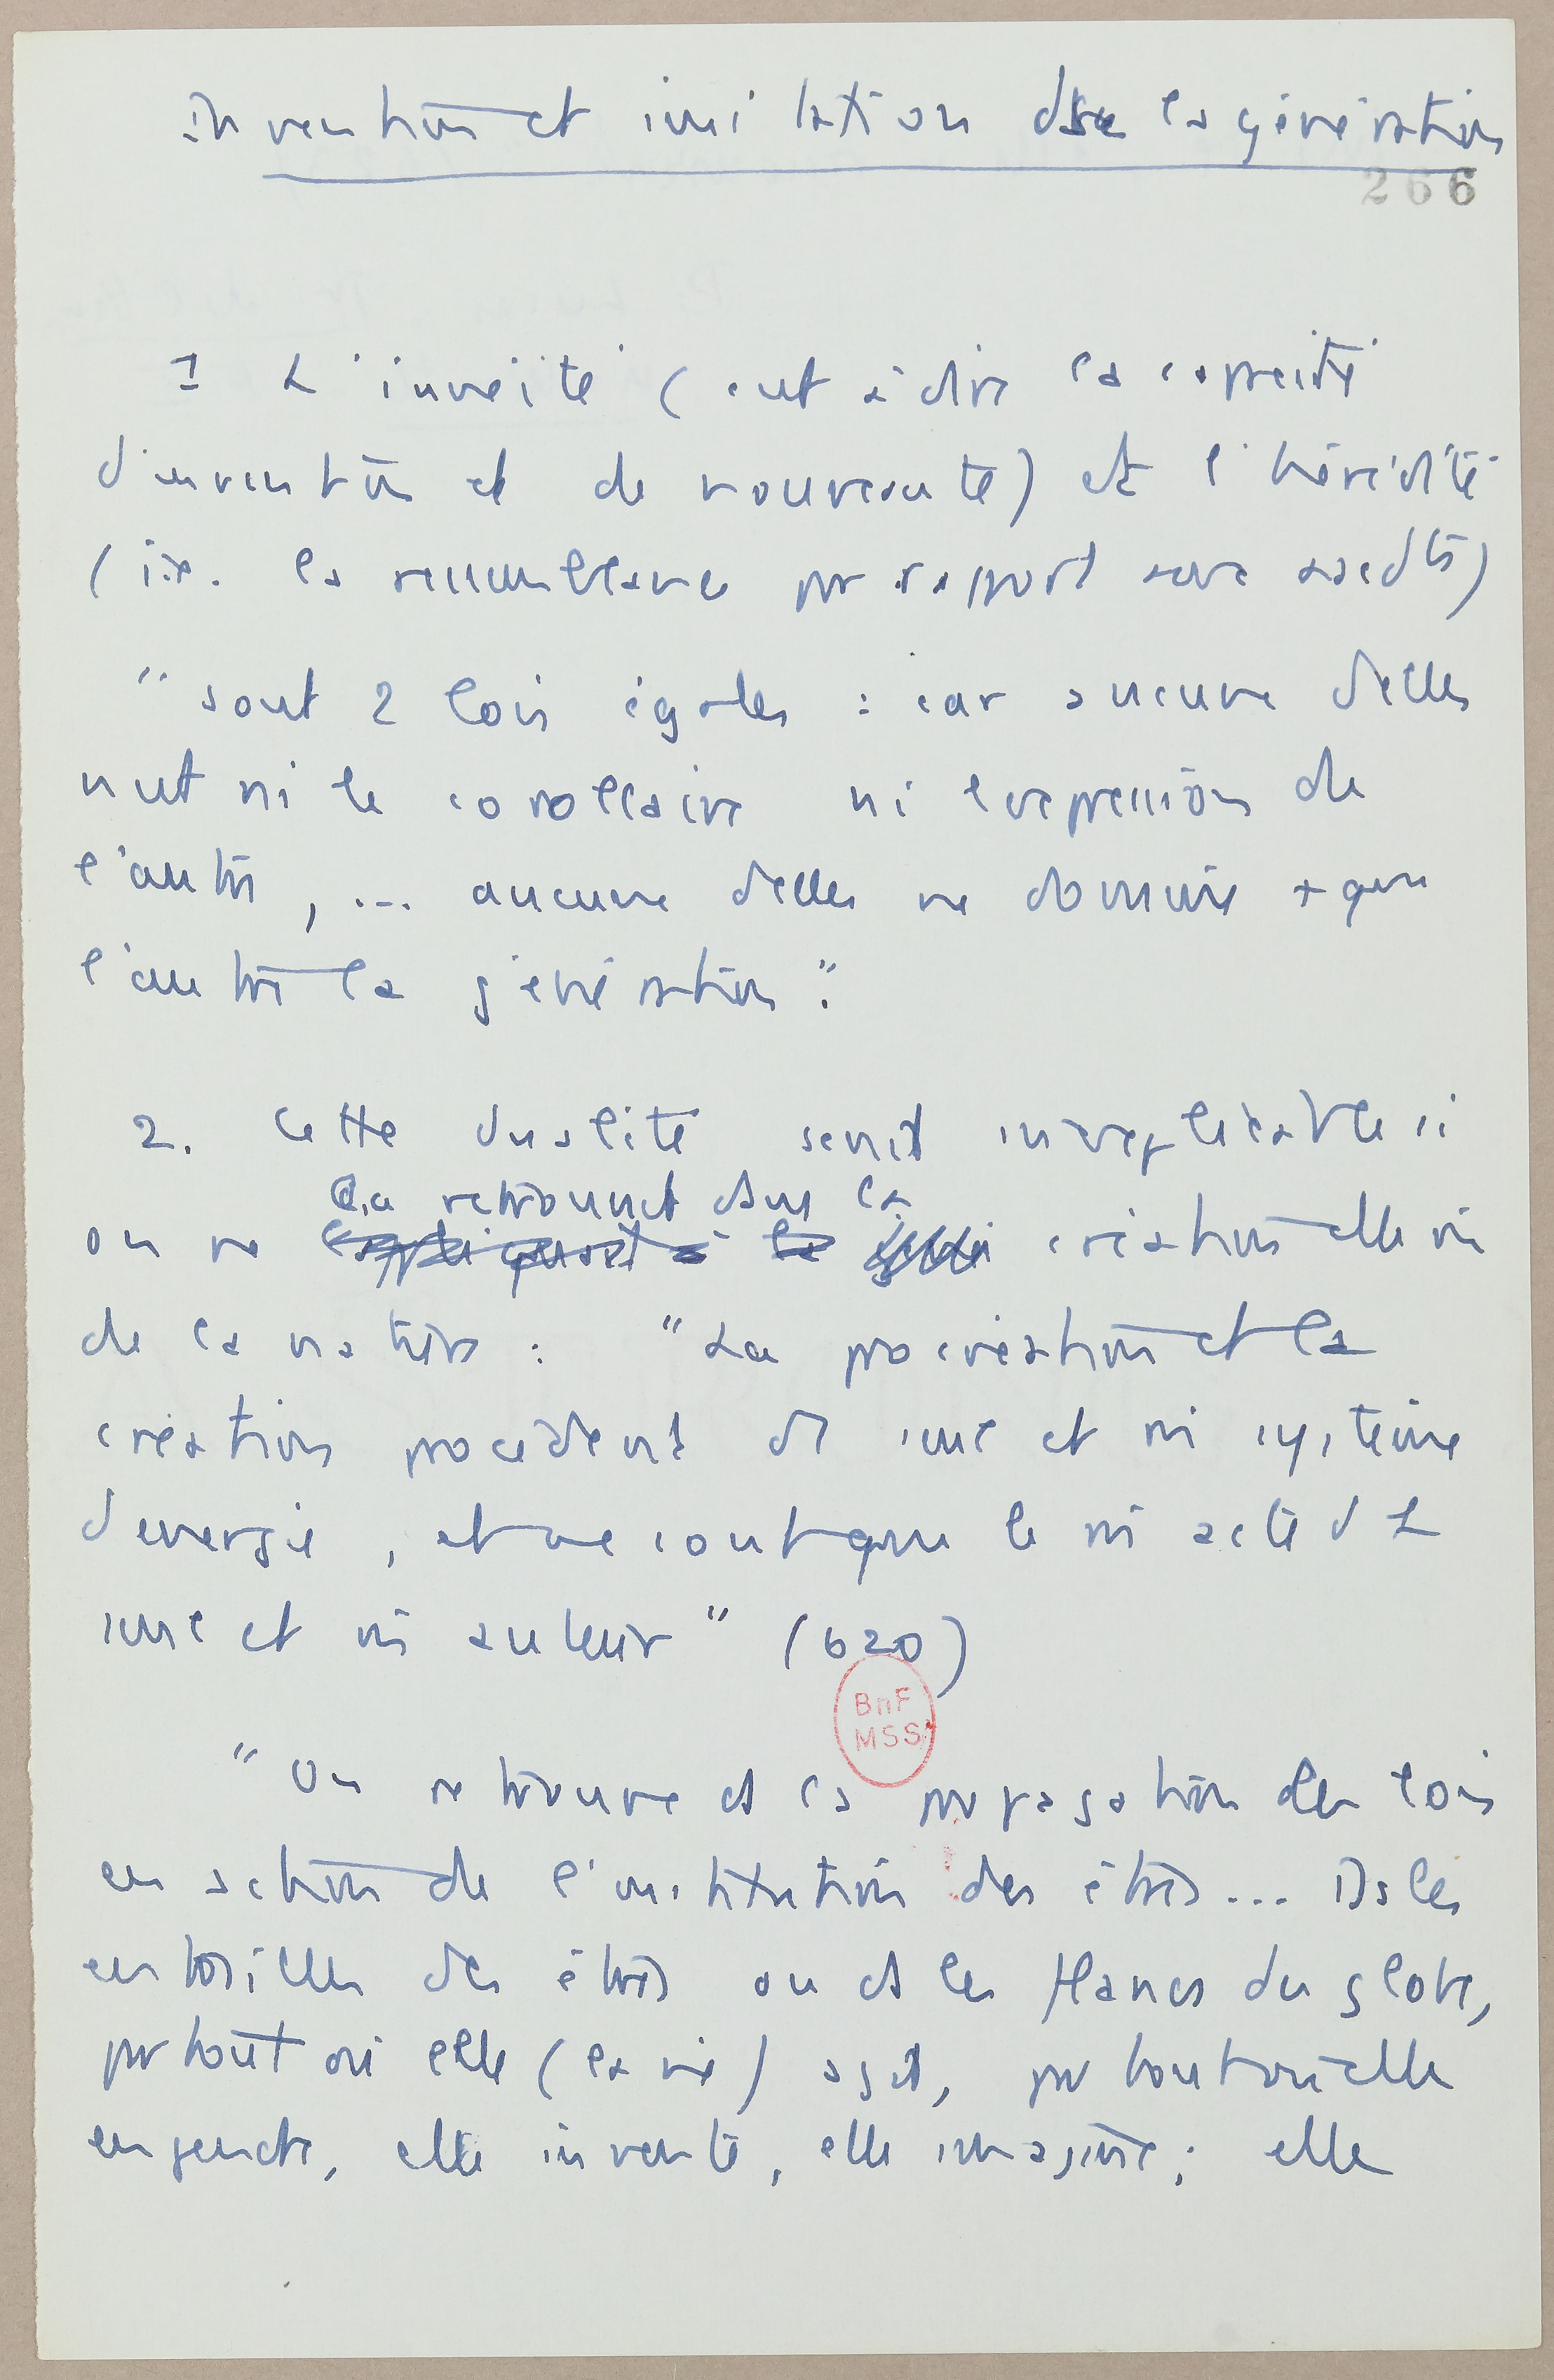 Invention et imitation ds la génération
266
1 L'innéité (c'est à dire la capacité
d'invention et de nouveauté) et l'hérédité
(i.e. la ressemblance par rapport aux ascdts)
"sont 2 lois égales : car aucune d'elles
n'est ni le corollaire ni l'expression de
l'autre, ... aucune d'elles ne domine + que
l'autre la génération".
2. Cette dualité serait inexplicable si
la retrouvait dans la
on ne création elle m
de la nature : "La procréation et la
création procèdent d'1 seul et m système
d'énergie, et ne sont que le m acte d'1
seul et m auteur" (620)
BnF
MSS
"On retrouve ds la propagation les lois
en action de l'institution des êtres... Ds les
entrailles des êtres ou ds les flancs du globe,
partout où elle (la vie) agit, partout où elle
engendre, elle invente, elle imagine; elle